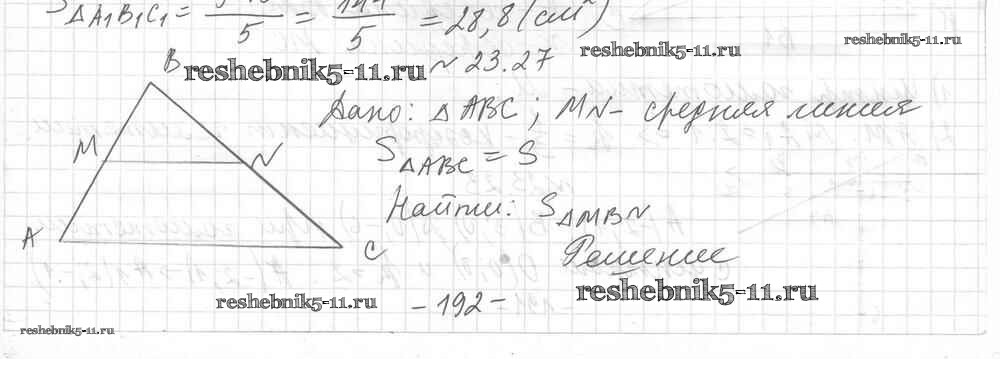 S△A₁B₁C₁ = /5 = 144/5 = 28,8 (см²)
reshebnik5-11.ru
reshebnik5-11.ru
B
reshebnik5-11.ru
№ 23.27
Дано: △ABC; MN - средняя линия
M
N
S△ABC = S
Найти: S△MBN
A
C
Решение
reshebnik5-11.ru
reshebnik5-11.ru
- 192 -
reshebnik5-11.ru